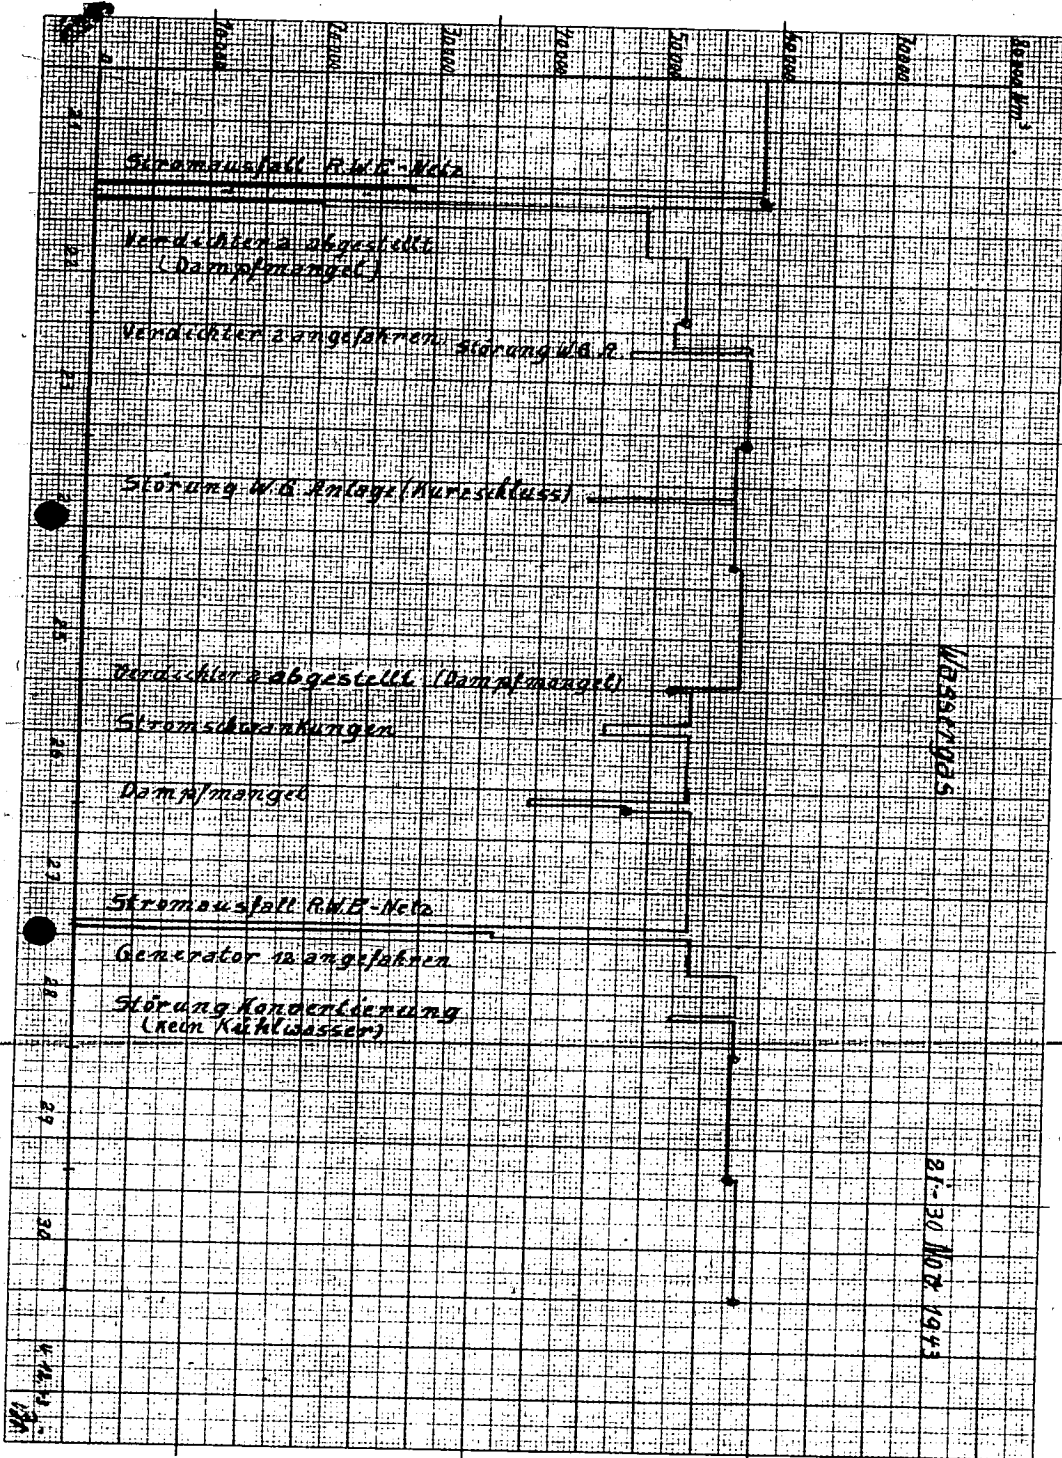 0
10000
20000
30000
40000
50000
60000
70000
80000 Nm³
21
Stromausfall R.W.E-Netz
22
Verdichter 2 abgestellt
(Dampfmangel)
Verdichter 2 angefahren
Störung W.G.A.
23
Störung W.G Anlage (Kurzschluss)
25
Verdichter 2 abgestellt (Dampfmangel)
Wassergas
Stromschwankungen
26
Dampfmangel
27
Stromausfall R.W.E-Netz
Generator 12 angefahren
28
Störung Konvertierung
(kein Kühlwasser)
29
21-30 Nov. 1943
30
4.12.43